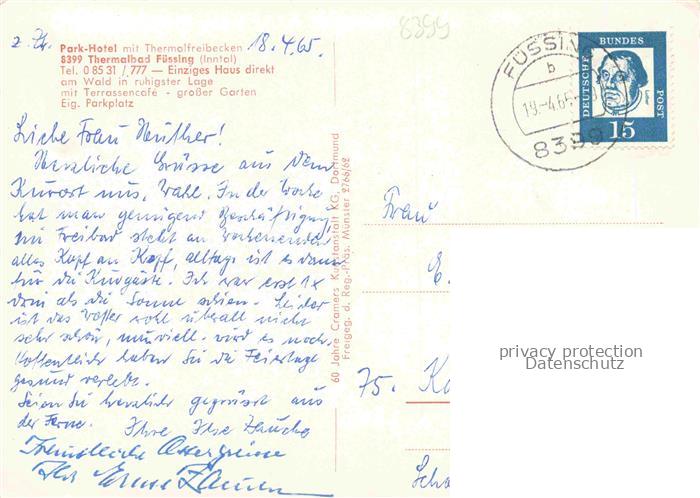 z. Zt.
18.4.65.
8399
Park-Hotel mit Thermalfreibecken
8399 Thermalbad Füssing (Inntal)
Tel. 0 85 31 / 777 — Einziges Haus direkt
am Wald in ruhigster Lage
mit Terrassencafé - großer Garten
Eig. Parkplatz
Liebe Frau
Herzliche Grüsse aus dem
Kurort
hat man genügend Beschäftigung,
im Freibad steht am Wochenende
alles Kopf an Kopf, alltags ist es dann
für die Kurgäste. Ich war erst 1x
drin als die Sonne schien. Leider
ist das Wetter wohl überall nicht
sehr schön, wird es noch.
Hoffentlich haben Sie die Feiertage
gesund verlebt.
Seien Sie herzlich gegrüsst aus
der Ferne. Ihre Ilse
Freundliche Ostergrüsse
60 Jahre Cramers Kunstanstalt KG, Dortmund
Freigeg. d. Reg.-Präs. Münster 2766/62
FÜSSING
b
19.-4.65
8399
DEUTSCHE BUNDES POST
15
Frau
E.
75. Ka
Scha
privacy protection
Datenschutz